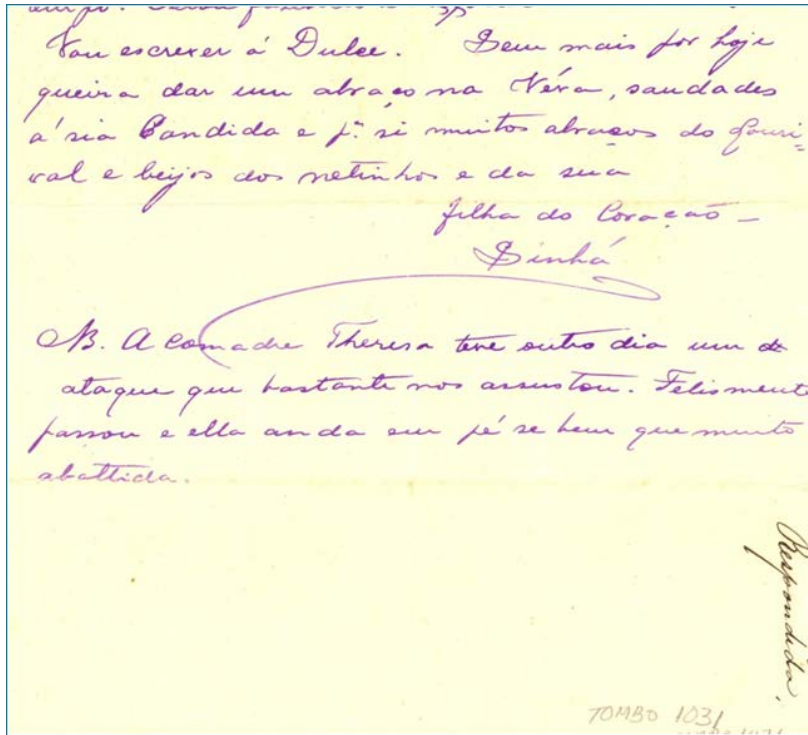 Vou escrever á Dulce. Sem mais por hoje
queira dar um abraço na Véra, saudades
á sia Candida e pª. si muitos abraços do Louri=
val e beijos dos netinhos e da sua
filha do Coração—
Sinhá
NB. A comadre Thereza teve outro dia um
ataque que bastante nos assustou. Felismente
passou e ella anda em pé se bem que muito
abattida.
Respondida.
TOMBO 1031